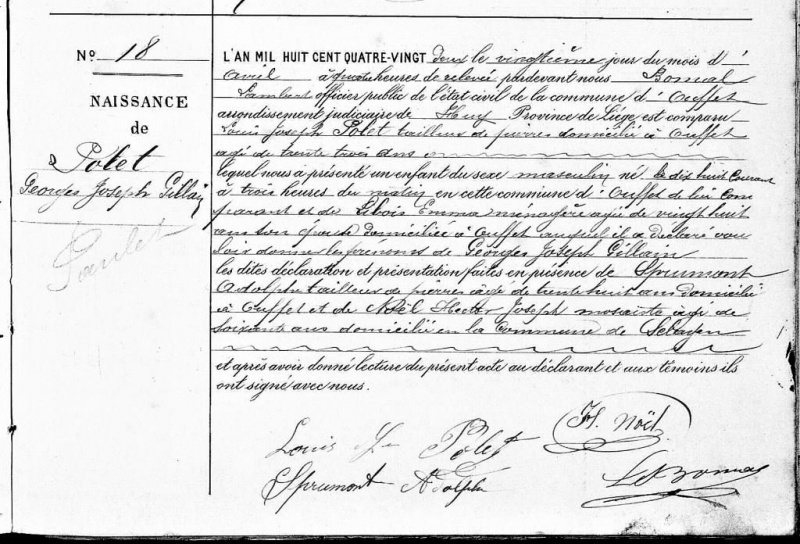 N° 18
NAISSANCE
de
Polet
Georges Joseph Gillain
L'AN MIL HUIT CENT QUATRE-VINGT deux le vingtième jour du mois d'
avril à quatre heures de relevée pardevant nous Bonmal
Lambert officier public de l'état civil de la commune d'Ouffet
arrondissement judiciaire de Huy Province de Liége, est comparu
Louis Joseph Polet tailleur de pierres domicilié à Ouffet
agé de trente trois ans
lequel nous a présenté un enfant du sexe masculin né le dix huit courant
à trois heures du matin en cette commune d'Ouffet de lui com
parant et de Libois Emma ménagère agée de vingt huit
ans son épouse domiciliée à Ouffet auquel il a déclaré vou
loir donner les prénoms de Georges Joseph Gillain
les dites déclaration et présentation faites en présence de Sprumont
Adolphe tailleur de pierres âgé de trente huit ans domicilié
à Ouffet et de Noël Hector Joseph agé de
soixante ans domicilié en la commune de
et après avoir donné lecture du présent acte au déclarant et aux témoins ils
ont signé avec nous.
H. Noël
Louis Polet
Sprumont Adolphe
L Bonmal